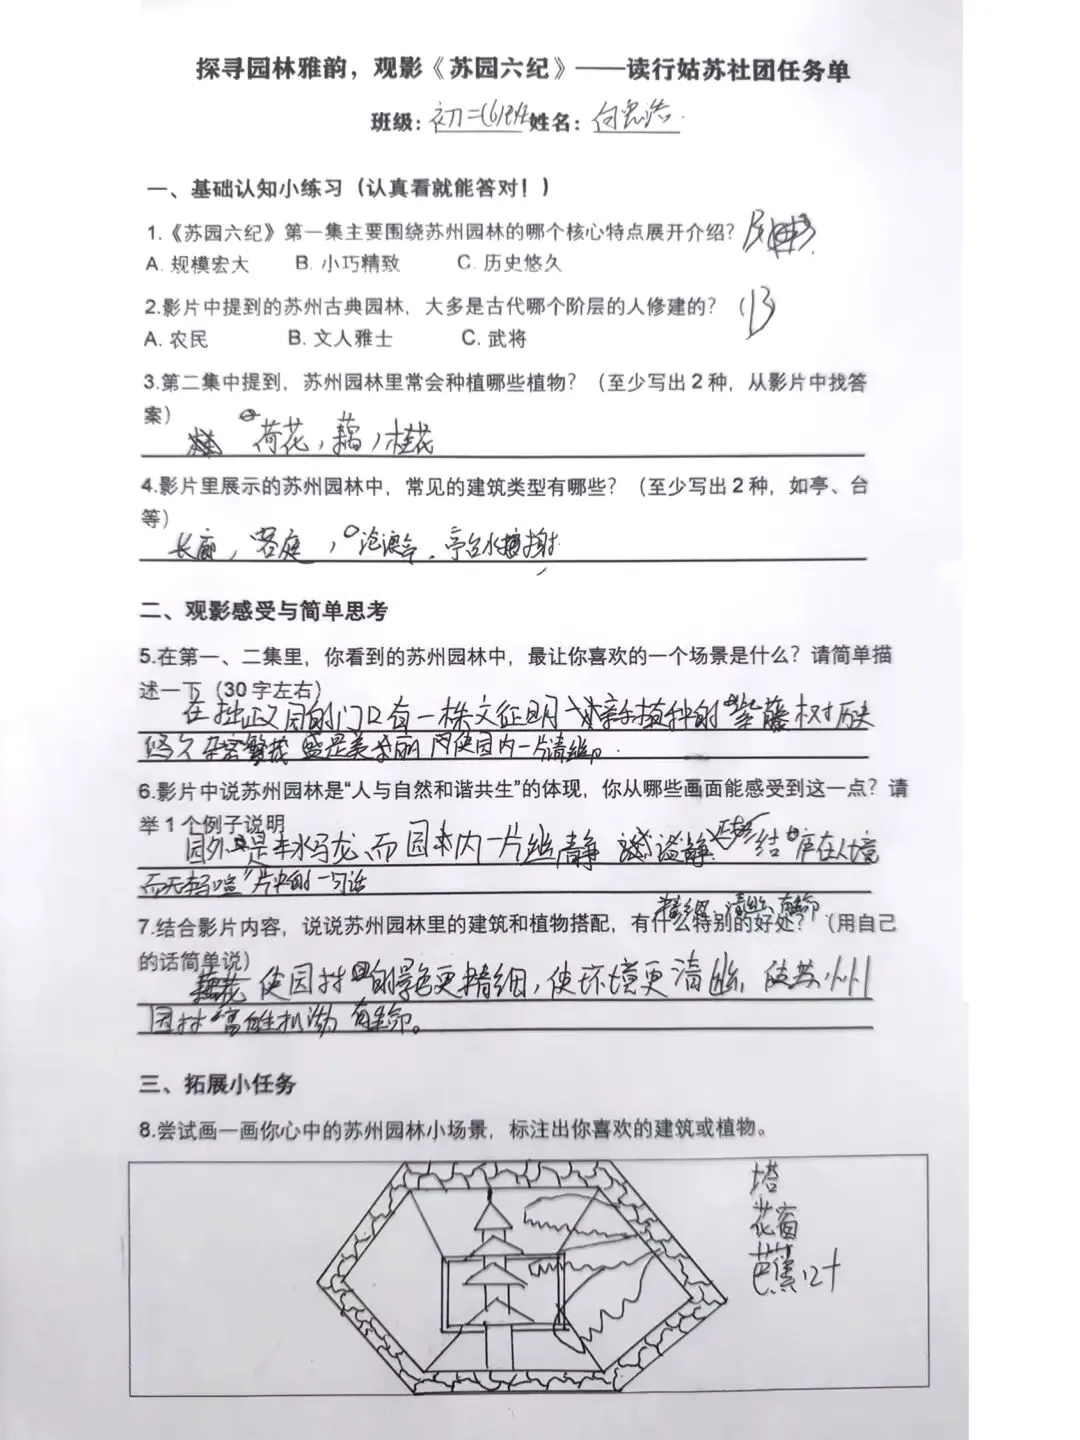 探寻园林雅韵，观影《苏园六纪》——读行姑苏社团任务单
班级：初二(6)班 姓名：
一、基础认知小练习（认真看就能答对！）
1.《苏园六纪》第一集主要围绕苏州园林的哪个核心特点展开介绍？B
A. 规模宏大 B. 小巧精致 C. 历史悠久
2.影片中提到的苏州古典园林，大多是古代哪个阶层的人修建的？（B
A. 农民 B. 文人雅士 C. 武将
3.第二集中提到，苏州园林里常会种植哪些植物？（至少写出2种，从影片中找答
案）
荷花，藕，桂花
4.影片里展示的苏州园林中，常见的建筑类型有哪些？（至少写出2种，如亭、台
等）
长廊，客庭，沧浪亭、亭台水榭
二、观影感受与简单思考
5.在第一、二集里，你看到的苏州园林中，最让你喜欢的一个场景是什么？请简单描
述一下（30字左右）
在拙正园的门口有一株文征明亲手植种的紫藤树历史
悠久 繁茂 盛是美丽 使园内一片清幽。
6.影片中说苏州园林是“人与自然和谐共生”的体现，你从哪些画面能感受到这一点？请
举1个例子说明
园外是车水马龙、而园内一片幽静 结庐在人境
而无车马喧 片中的一句话
7.结合影片内容，说说苏州园林里的建筑和植物搭配，有什么特别的好处？（用自己
精细、清幽、有生命
的话简单说）
使园林的景色更精细，使环境更清幽，使苏州
园林富有生机 有生命。
三、拓展小任务
8.尝试画一画你心中的苏州园林小场景，标注出你喜欢的建筑或植物。
塔
花窗
芭蕉叶